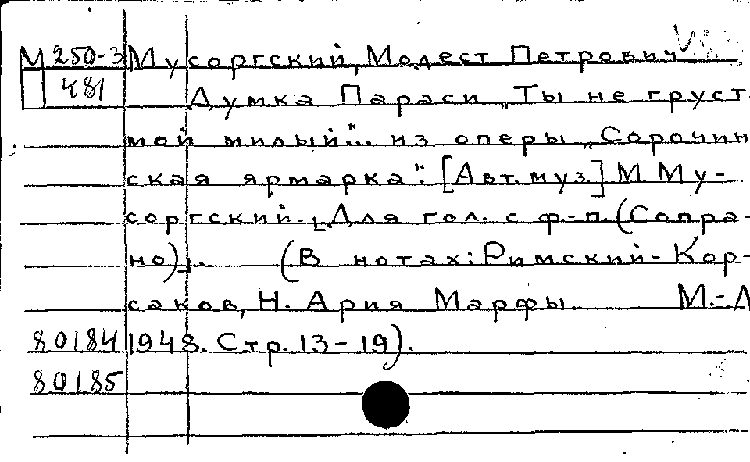 М 250-3 Мусоргский, Модест Петрович
481 Думка Параси „Ты не груст
мой милый"... из оперы „Сорочин
ская ярмарка". [Авт. муз.] М Му-
соргский. [Для гол. с ф-п. (Сопра-
но)]. (В нотах: Римский-Кор-
саков, Н. Ария Марфы. М.-Л
80184 1948. Стр. 13-19).
80185